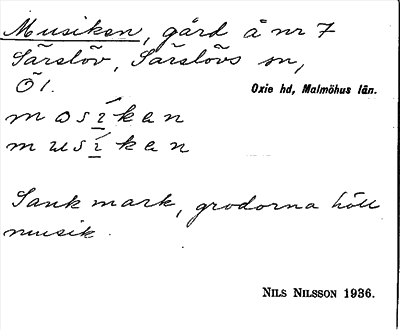 Musiken, gård å nr 7
Särslöv, Särslövs sn,
Öl.
Oxie hd, Malmöhus län.
mosíken
musíken
Sank mark, grodorna höll
musik.
NILS NILSSON 1936.